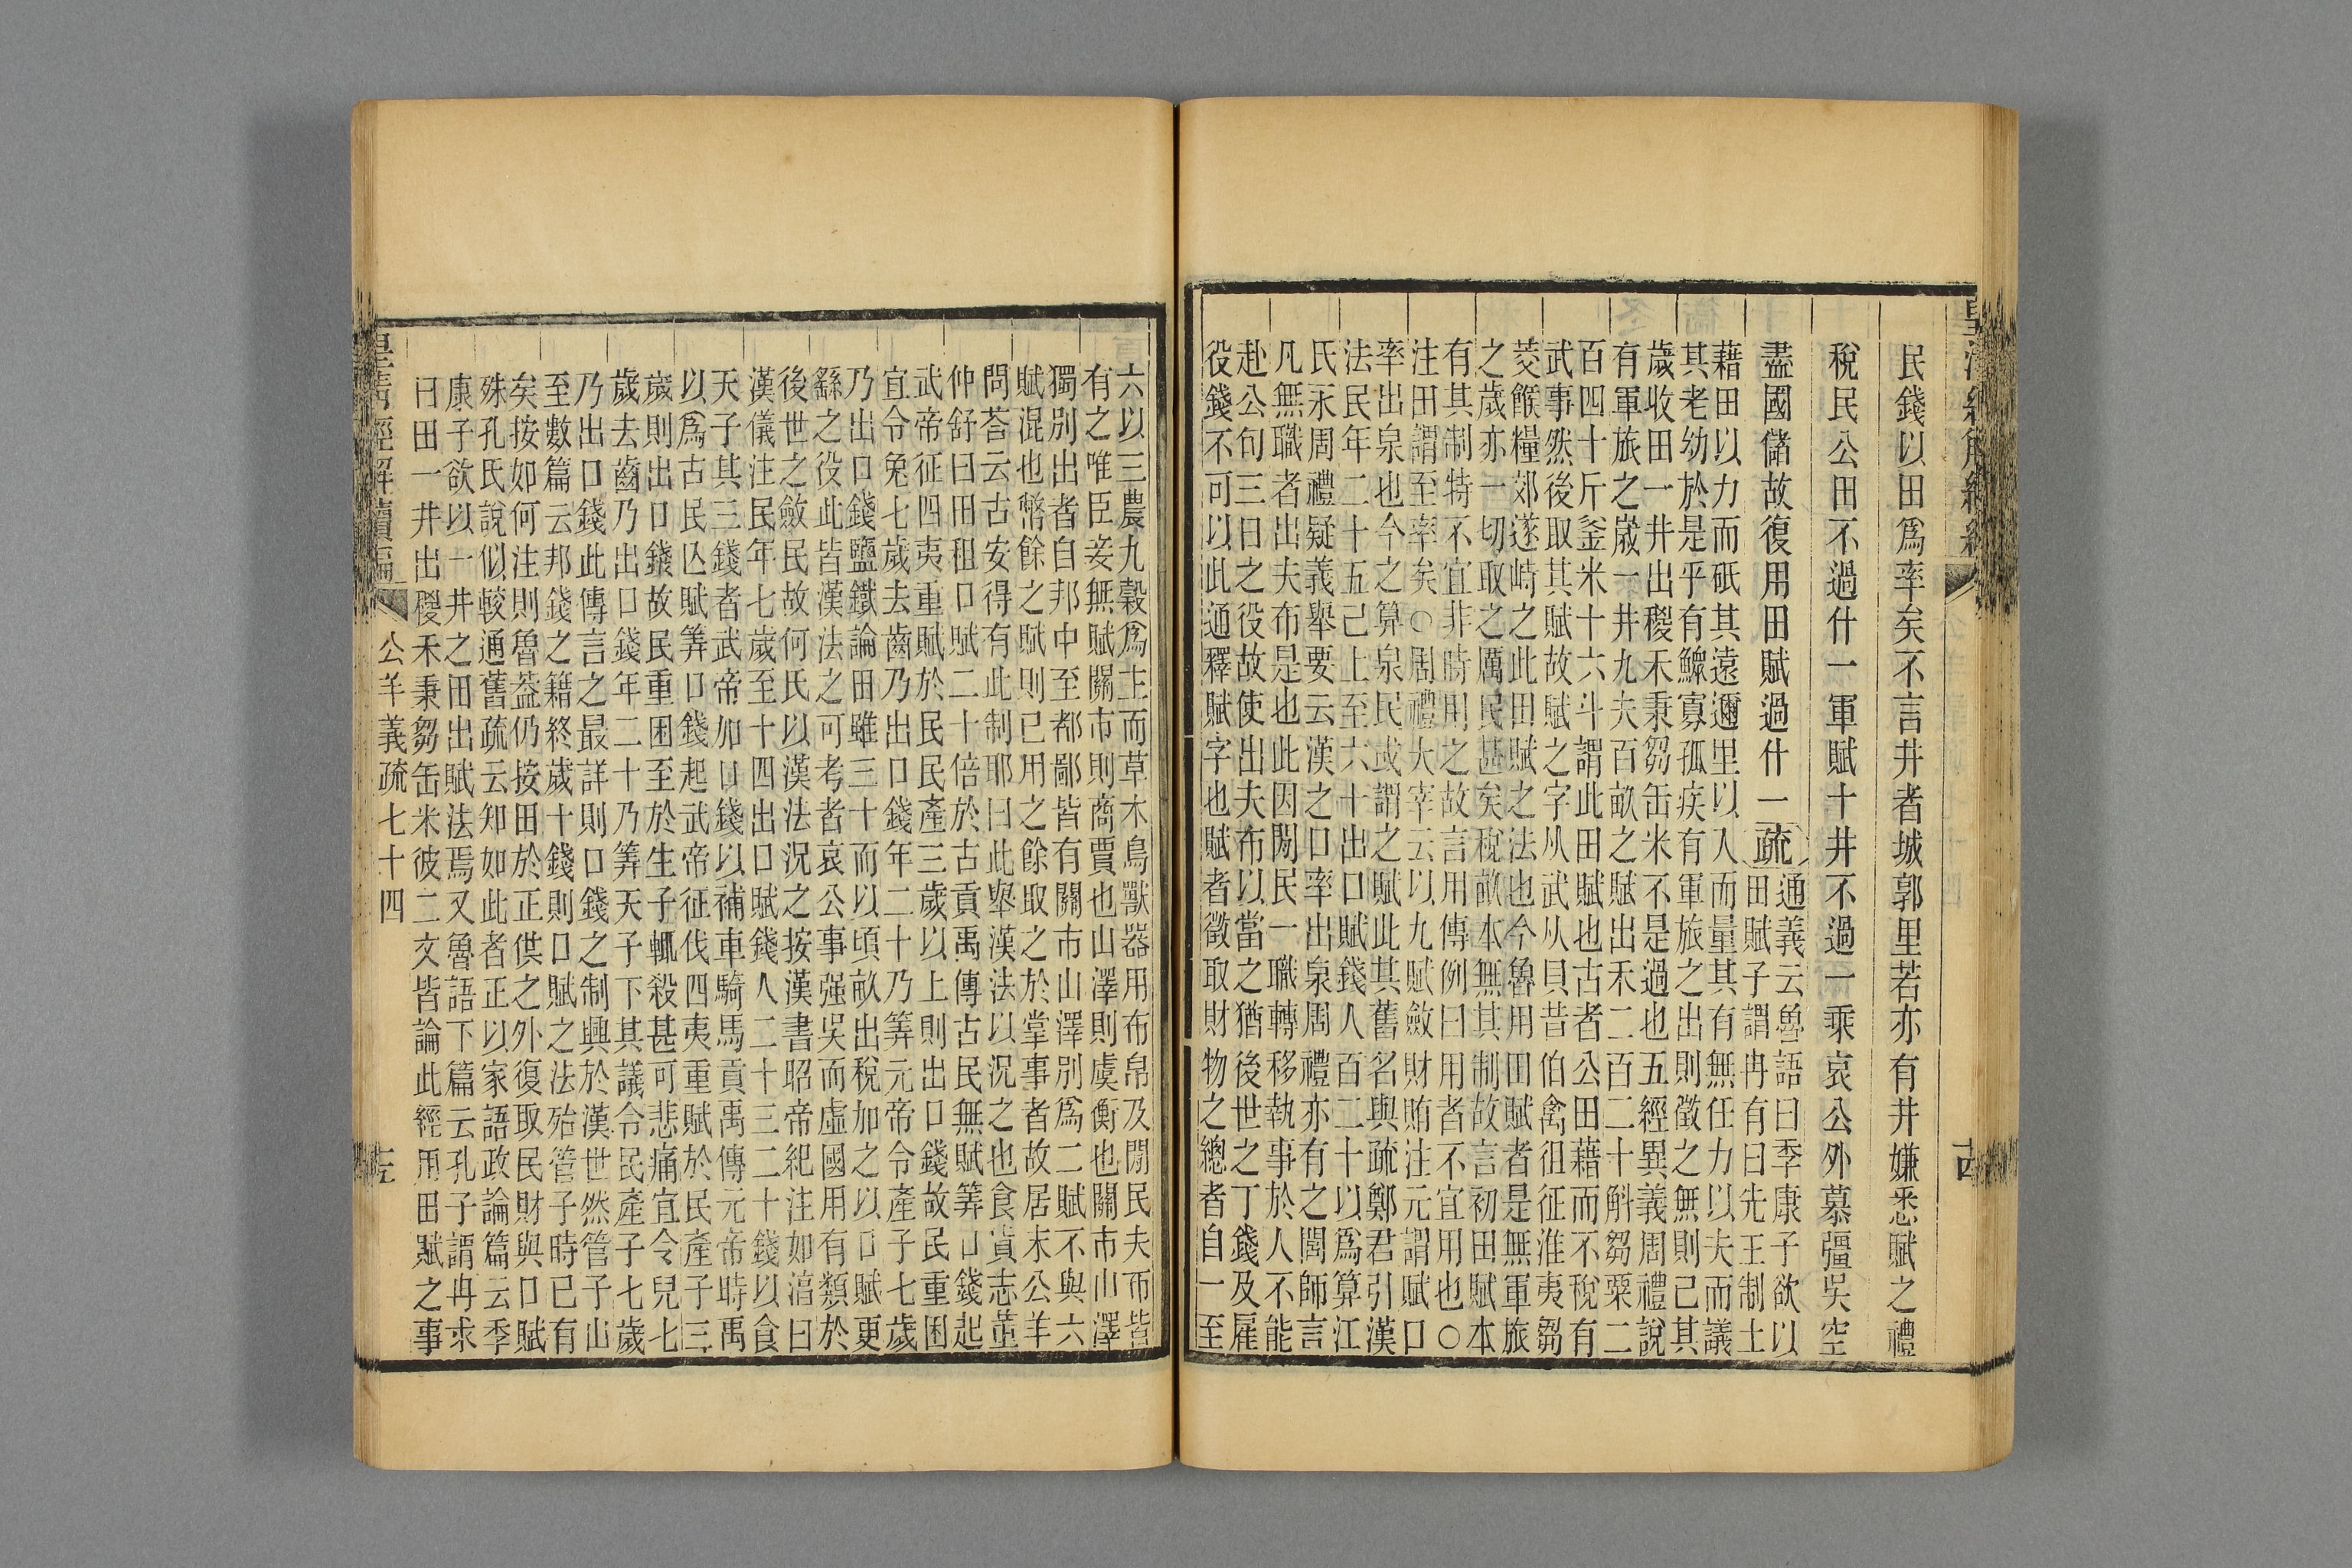 民錢以田爲率矣不言井者城郭里若亦有井嫌悉賦之禮
稅民公田不過什一軍賦十井不過一乘哀公外慕彊吳空
盡國儲故復用田賦過什一疏通義云魯語曰季康子欲以
田賦子謂冉有曰先王制土
藉田以力而砥其遠邇里以入而量其有無任力以夫而議
其老幼於是乎有鰥寡孤疾有軍旅之出則徵之無則已其
歲收田一井出稷禾秉芻缶米不是過也五經異義周禮說
有軍旅之歲一井九夫百畝之賦出禾二百二十斛芻粟二
百四十斤釜米十六斗謂此田賦也古者公田藉而不稅有
武事然後取其賦故賦之字从武从貝昔伯禽徂征淮夷芻
茭餱糧郊遂峙之此田賦之法也今魯用田賦者是無軍旅
之歲亦一切取之厲民甚矣稅畝本無其制故言初田賦本
有其制特不宜非時用之故言用傳例曰用者不宜用也○
注田謂至率矣○周禮大宰云以九賦斂財賄注元謂賦口
率出泉也今之算泉民或謂之賦此其舊名與疏鄭君引漢
法民年二十五已上至六十出口賦錢人百二十以爲算江
氏永周禮疑義舉要云漢之口率出泉周禮亦有之閭師言
凡無職者出夫布是也此因閒民一職轉移執事於人不能
赴公旬三日之役故使出夫布以當之猶後世之丁錢及雇
役錢不可以此通釋賦字也賦者徵取財物之總者自一至
十四
六以三農九穀爲主而草木鳥獸器用布帛及閒民夫布皆
有之唯臣妾無賦關市則商賈也山澤則虞衡也關市山澤
獨別出者自邦中至都鄙皆有關市山澤別爲二賦不與六
賦混也幣餘之賦則已用之餘取之於掌事者故居末公羊
問荅云古安得有此制耶曰此舉漢法以況之也食貨志董
仲舒曰田租口賦二十倍於古貢禹傳古民無賦筭口錢起
武帝征四夷重賦於民民產三歲以上則出口錢故民重困
宜令兒七歲去齒乃出口錢年二十乃筭元帝令產子七歲
乃出口錢鹽鐵論田雖三十而以頃畝出稅加之以口賦更
繇之役此皆漢法之可考者哀公事强吳而虛國用有類於
後世之斂民故何氏以漢法況之按漢書昭帝紀注如淳曰
漢儀注民年七歲至十四出口賦錢人二十三二十錢以食
天子其三錢者武帝加口錢以補車騎馬貢禹傳元帝時禹
以爲古民亾賦筭口錢起武帝征伐四夷重賦於民產子三
歲則出口錢故民重困至於生子輒殺甚可悲痛宜令兒七
歲去齒乃出口錢年二十乃筭天子下其議令民產子七歲
乃出口錢此傳言之最詳則口錢之制興於漢世然管子山
至數篇云邦錢之籍終歲十錢則口賦之法殆管子時已有
矣按如何注則魯葢仍按田於正供之外復取民財與口賦
殊孔氏說似較通舊疏云知如此者正以家語政論篇云季
康子欲以一井之田出賦法焉又魯語下篇云孔子謂冉求
曰田一井出稷禾秉芻缶米彼二文皆論此經用田賦之事
皇淸經解續編 公羊義疏七十四